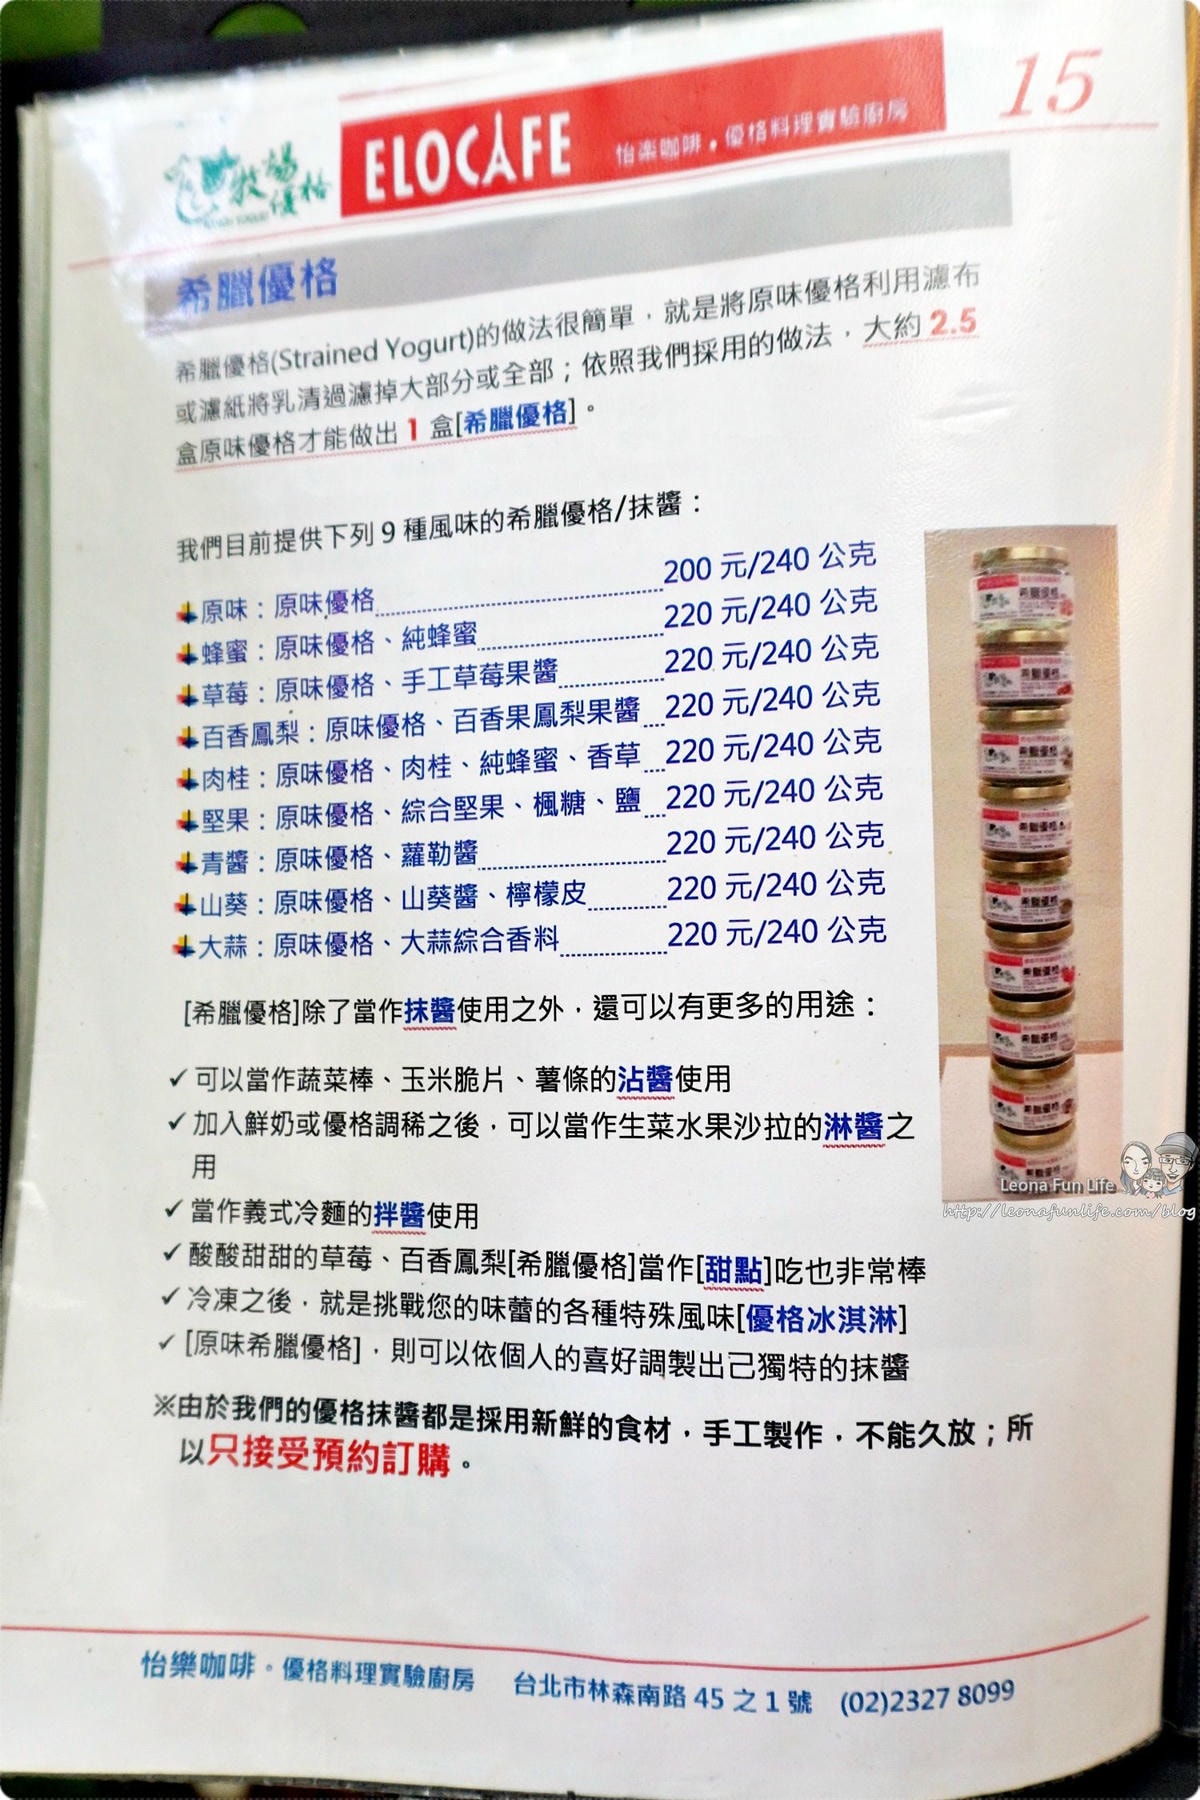 15
牧場優格
ELOCAFE
怡楽咖啡。優格料理實驗廚房
希臘優格
希臘優格(Strained Yogurt)的做法很簡單，就是將原味優格利用濾布
或濾紙將乳清過濾掉大部分或全部；依照我們採用的做法，大約 2.5
盒原味優格才能做出 1 盒[希臘優格]。
我們目前提供下列 9 種風味的希臘優格/抹醬：
原味：原味優格 200 元/240 公克
蜂蜜：原味優格、純蜂蜜 220 元/240 公克
草莓：原味優格、手工草莓果醬 220 元/240 公克
百香鳳梨：原味優格、百香果鳳梨果醬 220 元/240 公克
肉桂：原味優格、肉桂、純蜂蜜、香草 220 元/240 公克
堅果：原味優格、綜合堅果、楓糖、鹽 220 元/240 公克
青醬：原味優格、蘿勒醬 220 元/240 公克
山葵：原味優格、山葵醬、檸檬皮 220 元/240 公克
大蒜：原味優格、大蒜綜合香料 220 元/240 公克
[希臘優格]除了當作抹醬使用之外，還可以有更多的用途：
✓ 可以當作蔬菜棒、玉米脆片、薯條的沾醬使用
✓ 加入鮮奶或優格調稀之後，可以當作生菜水果沙拉的淋醬之
用
✓ 當作義式冷麵的拌醬使用
✓ 酸酸甜甜的草莓、百香鳳梨[希臘優格]當作[甜點]吃也非常棒
✓ 冷凍之後，就是挑戰您的味蕾的各種特殊風味[優格冰淇淋]
✓ [原味希臘優格]，則可以依個人的喜好調製出己獨特的抹醬
※由於我們的優格抹醬都是採用新鮮的食材，手工製作，不能久放；所
以只接受預約訂購。
希臘優格
希臘優格
希臘優格
希臘優格
希臘優格
希臘優格
希臘優格
希臘優格
希臘優格
Leona Fun Life
http://leonafunlife.com/blog
怡樂咖啡。優格料理實驗廚房 台北市林森南路 45 之 1 號 (02)2327 8099